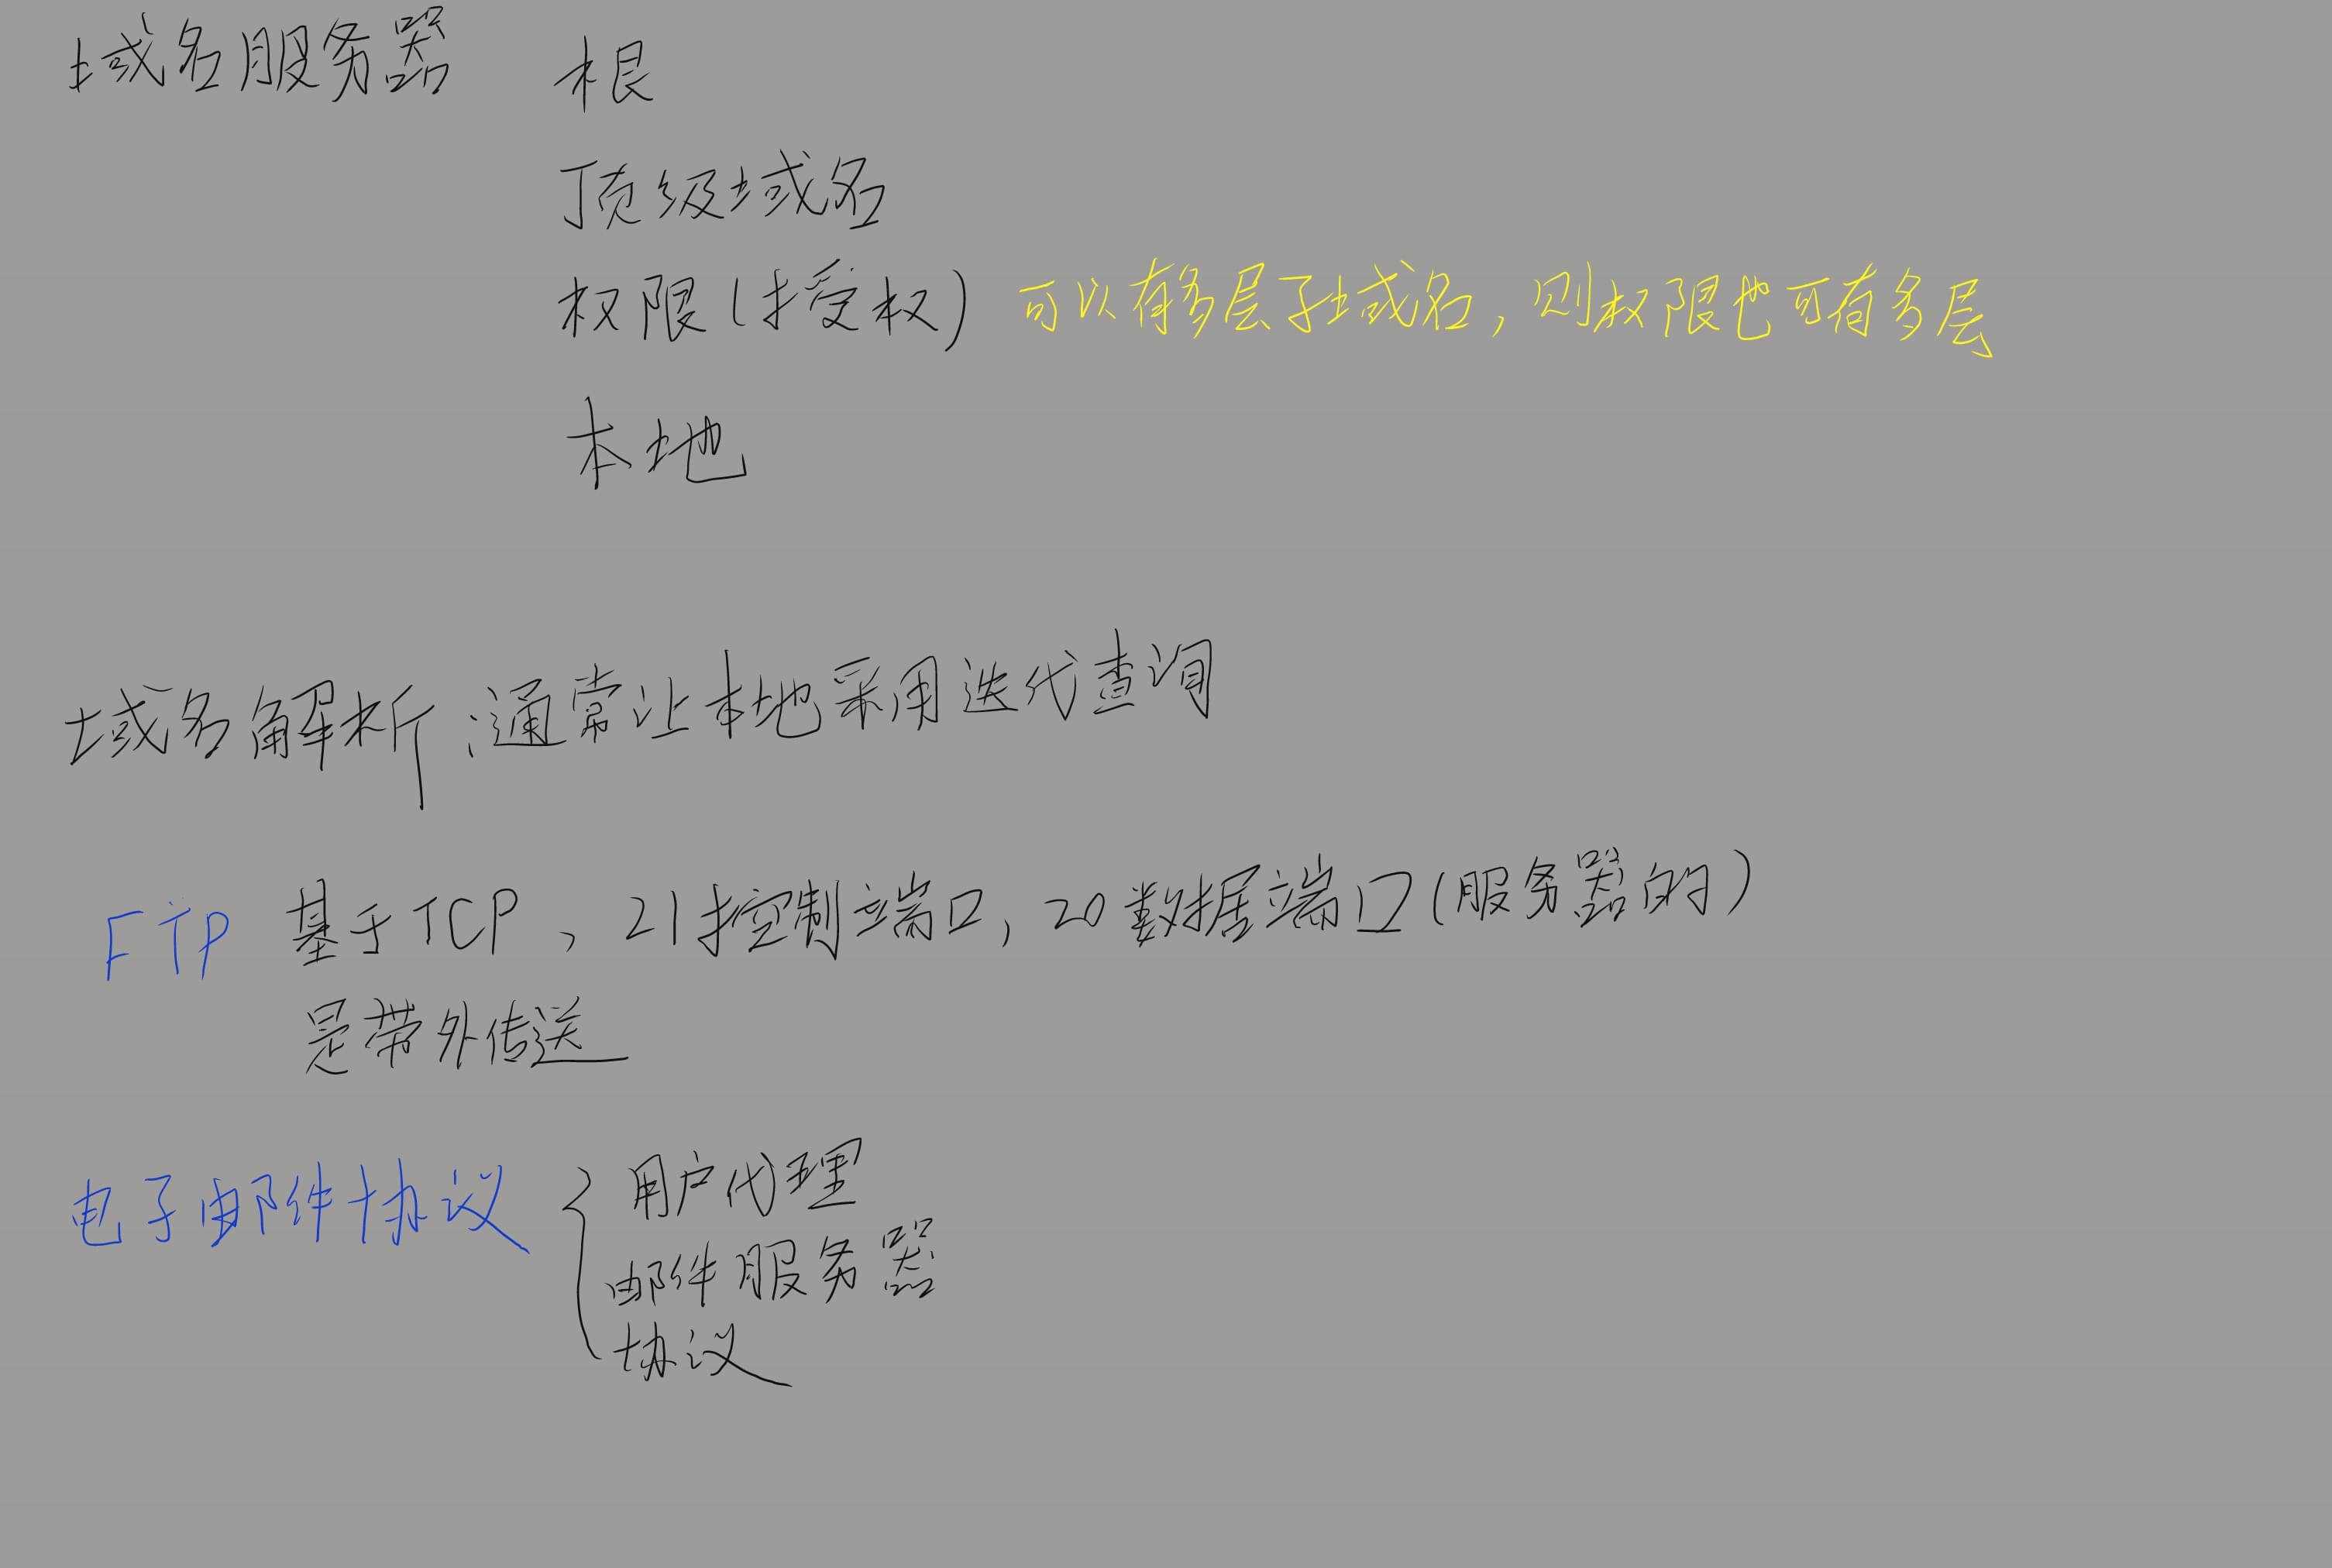 域名服务器 根
顶级域名
权限(授权) 可以有多层子域名,则权限也可有多层
本地
域名解析:通常让本地采用迭代查询
FTP 基于TCP、21控制端口,20数据端口(服务器的)
是带外传送
电子邮件协议 用户代理
邮件服务器
协议